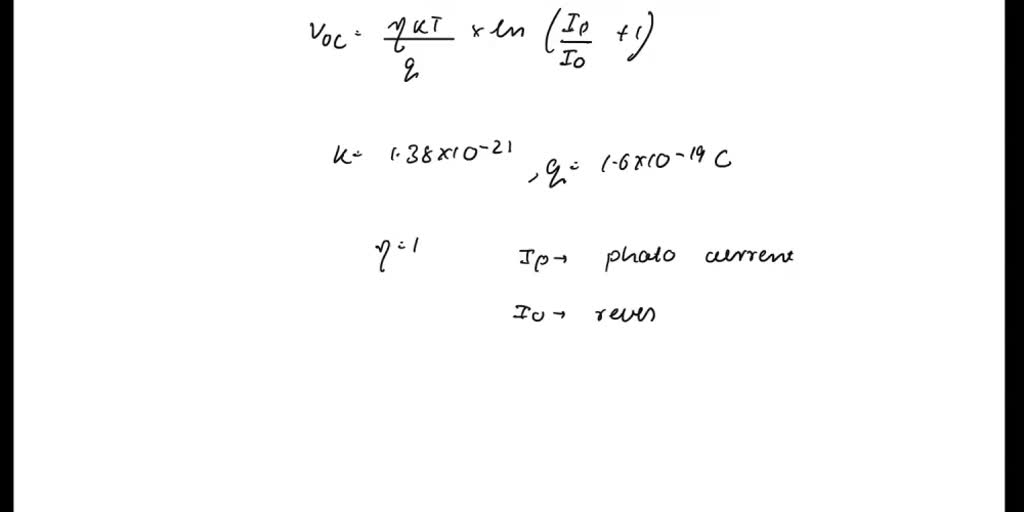 Voc = ηKT/q × ln (Ip/Io + 1)
K = 1.38×10^-21, q = 1.6×10^-19 C
η = 1 Ip → photo current
Io → revers